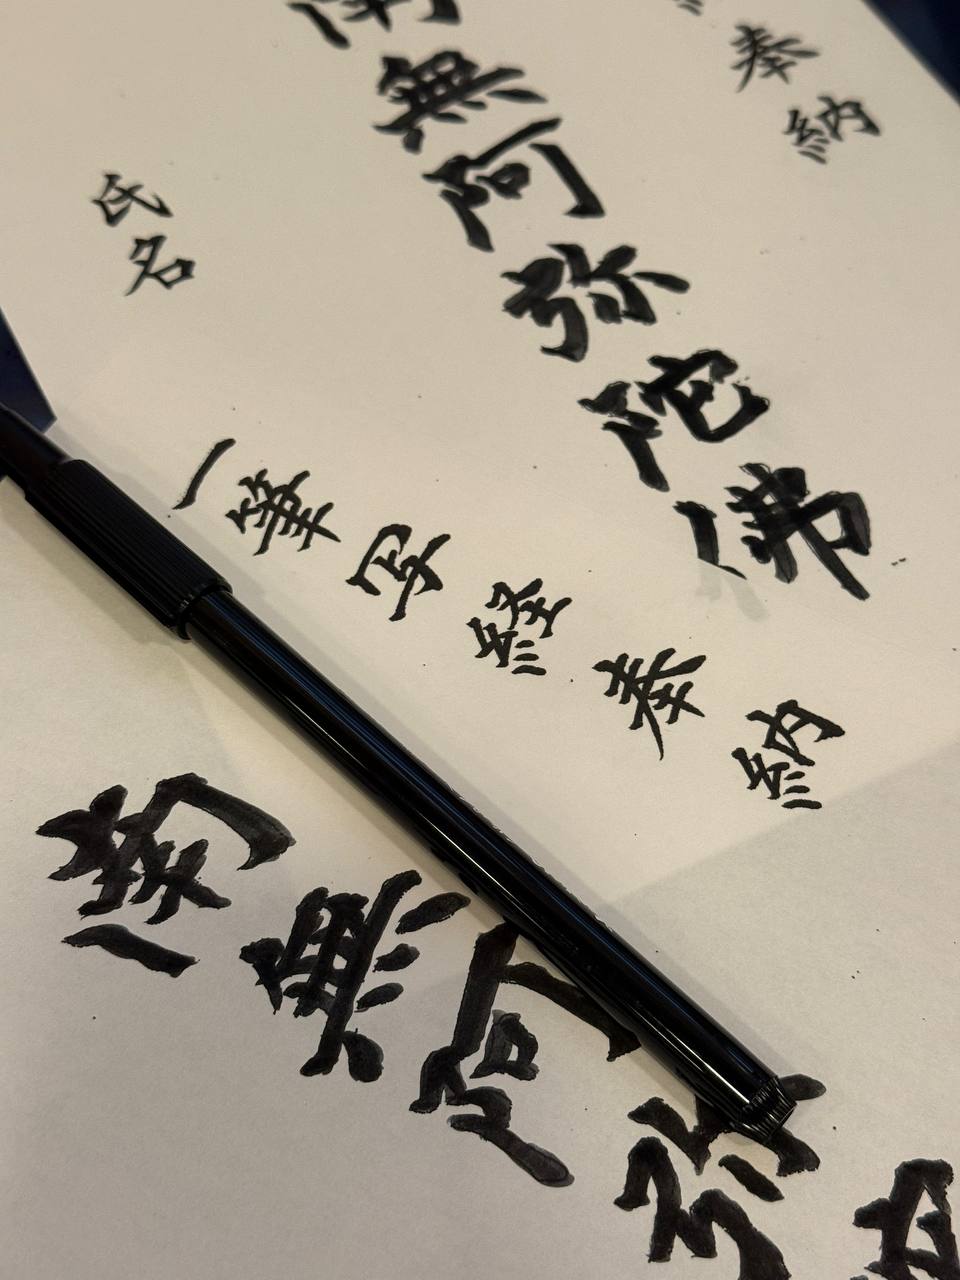 奉納
南無阿弥陀佛
氏名
一筆写経奉納
南無阿弥